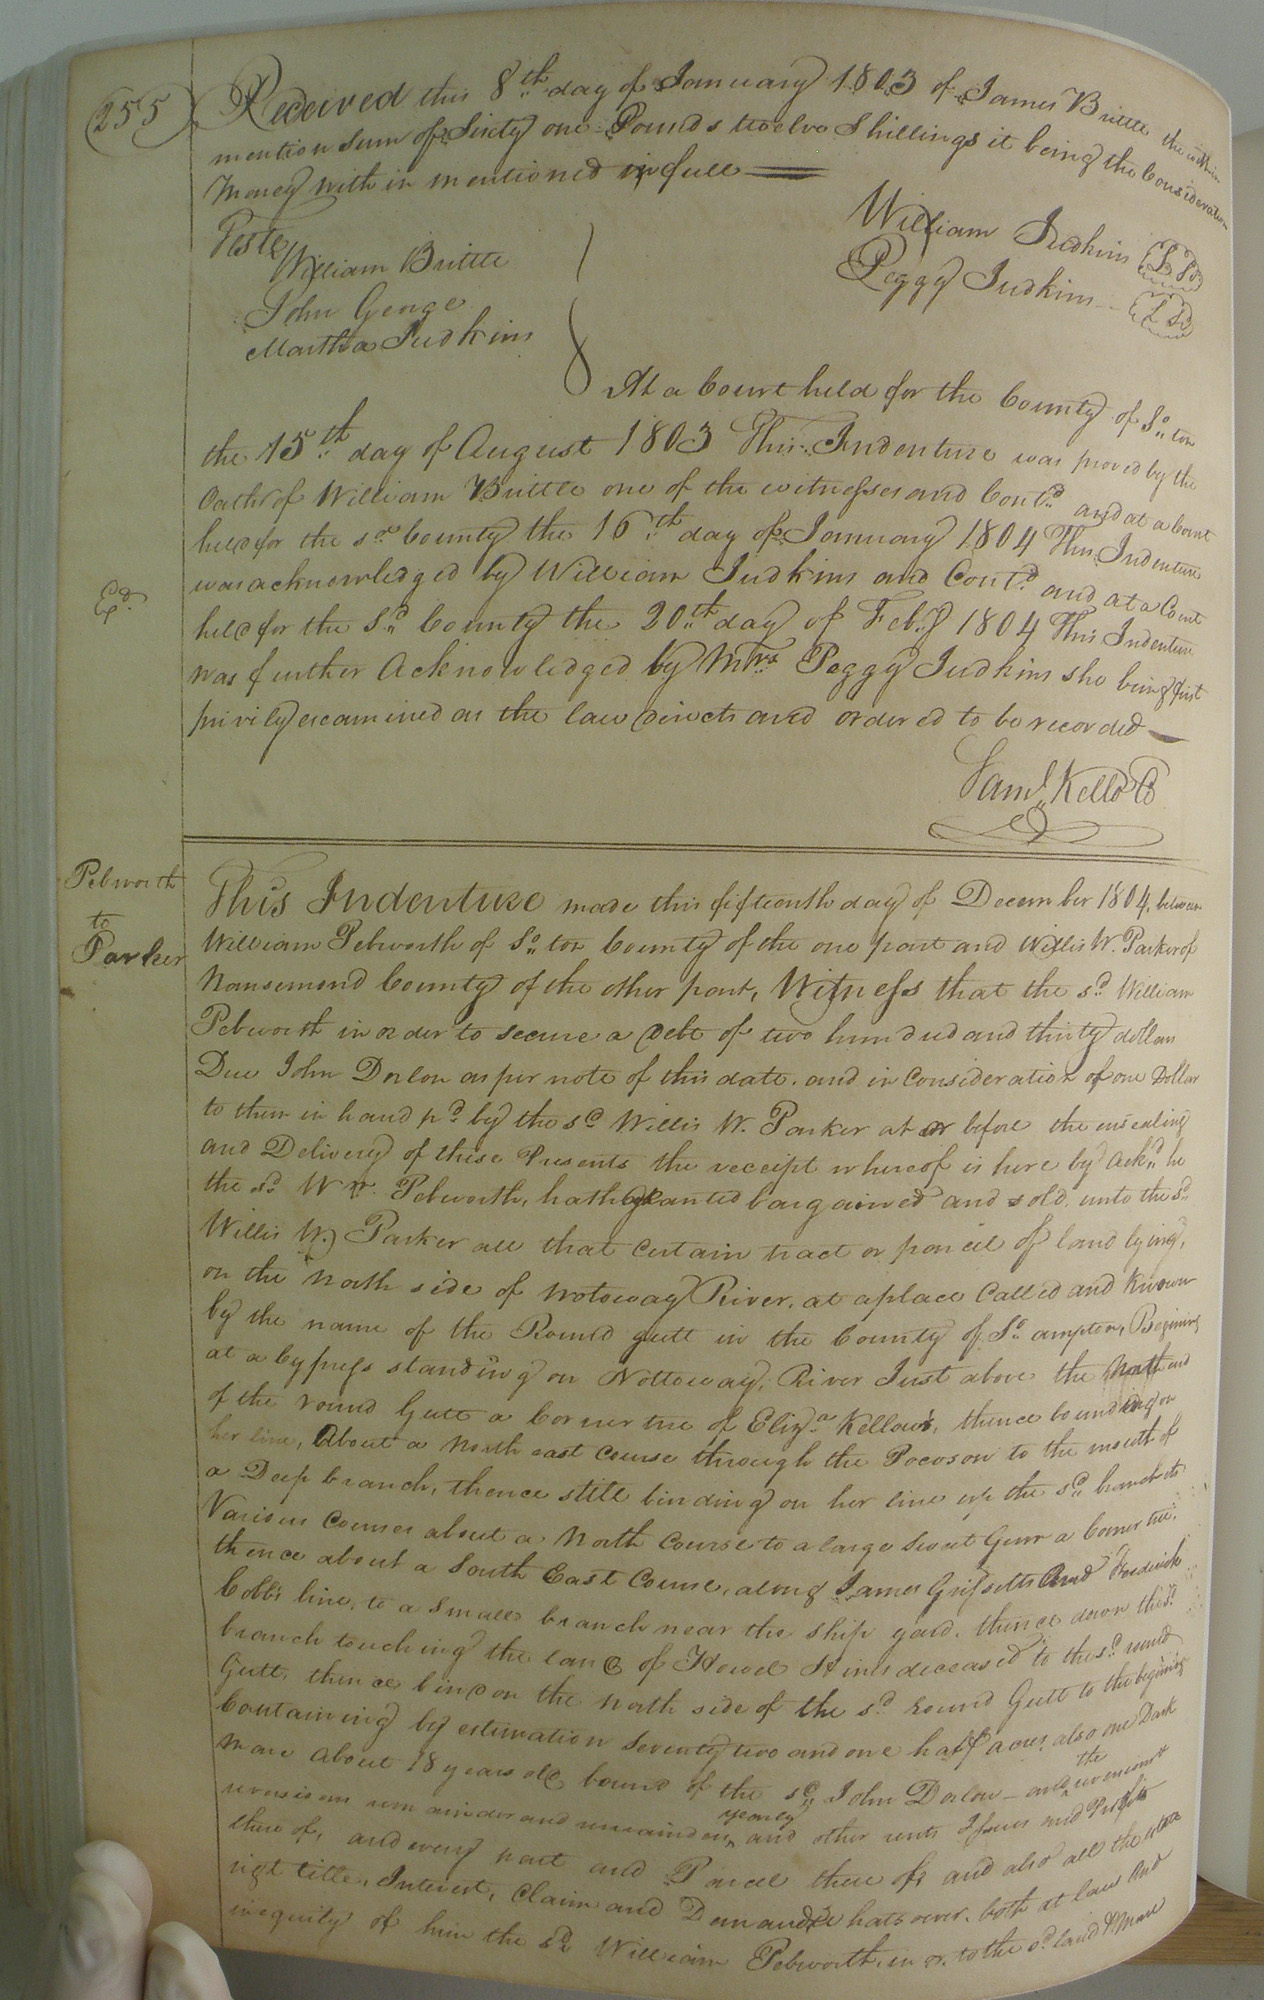 255
Received this 8th day of January 1803 of James Brittle the within
mention Sum of Sixty one Pounds twelve Shillings it being the Consideration
Money with in mentioned in full
Teste
William Judkins (L S)
William Brittle
Peggy Judkins (L S)
John George
Martha Judkins
At a Court held for the County of So ton
the 15th day of August 1803 This Indenture was proved by the
Oath of William Brittle one of the witnesses and Contd and at a Court
held for the sd County the 16th day of January 1804 This Indenture
was acknowledged by William Judkins and Contd and at a Court
Ed
held for the Sd County the 20th day of Feby 1804 This Indenture
was further Acknowledged by Mrs Peggy Judkins she being first
privily examined as the law directs and ordered to be recorded
Saml Kello C
Pebworth
to
Parker
This Indenture made this fifteenth day of December 1804, between
William Pebworth of So ton County of the one part and Willis W. Parker of
Nansemond County of the other part, Witness that the sd William
Pebworth in order to secure a debt of two hundred and thirty dollars
Due John Dorlon as per note of this date. and in Consideration of one Dollar
to them in hand pd by the sd Willis W. Parker at or before the ensealing
and Delivery of these Presents the receipt whereof is here by Ackd he
the sd Wm. Pebworth, hath Granted bargained and sold. unto the sd
Willis W. Parker all that certain tract or parcel of land lying,
on the North side of Notoway River. at a place Called and Known
by the name of the Round gutt in the County of So ampton, Begining
at a Cypress standing on Nottoway, River Just above the North end
of the round Gutt a Corner tree of Eliza Kellow's, thence bounding on
her line, About a North east course through the Pocoson to the mouth of
a Deep branch, thence still binding on her line up the sd branch its
Various Courses about a North Course to a large Sweet Gum a Corner tree.
thence about a South East Course, along James Grissetts And Frederick
Cobbs line, to a Small branch near the Ship yard. thence down the sd
branch touching the land of Howel Hines deceased to the sd round
Gutt. thence bind on the North side of the sd Round Gutt to the begining
Containing by estimation Seventy two and one half acres also one Dark
Mare About 18 years old, bound of the sd John Dorlon - and the revenient
reversions remainder and remainders, yearly and other rents Issues and Profits
there of, and every part and Parcel there of, and also all the
right title, Interest, Claim and Demand whatsoever. both at law And
in equity of him the sd William Pebworth, in or. to the sd land & Mare